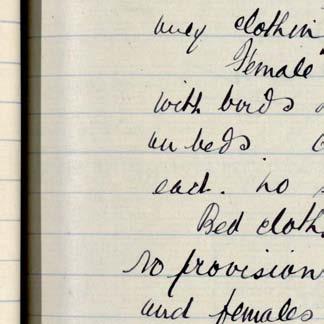 any clothin
Female
with birds
in beds
each. No
Bed cloth
no provision
and females